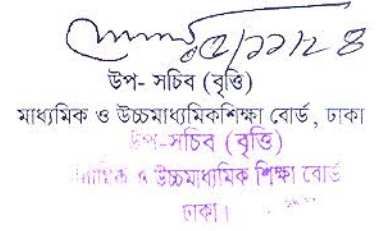 উপ- সচিব (বৃত্তি)
মাধ্যমিক ও উচ্চমাধ্যমিকশিক্ষা বোর্ড, ঢাকা
উপ-সচিব (বৃত্তি)
মাধ্যমিক ও উচ্চমাধ্যমিক শিক্ষা বোর্ড
ঢাকা।